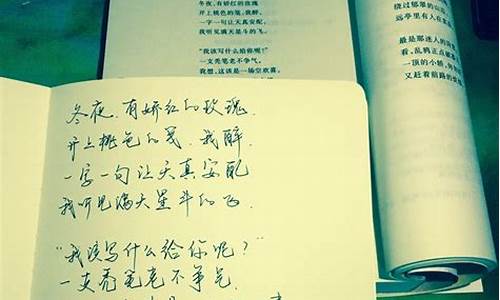 冬夜,有娇红的玫瑰
开上桃色的笺,我醉,
一字一句让天真安配,
我听见满天星斗的飞。
“我该写什么给你呢?”
一支秃笔老不争气,
我想,这该是一场空欢喜,
绕过郁翠的山
远亭里有人在
最是那迷人的
看,乱鸦正点破
一顶的小轿,
又赶着前路的
冬夜,有娇红的玫瑰,
开上桃色的笺,我醉,
一字一句让天真安配
我听见满天星斗的飞,
“我该写什么给你呢?”
一支秃笔老不争气,